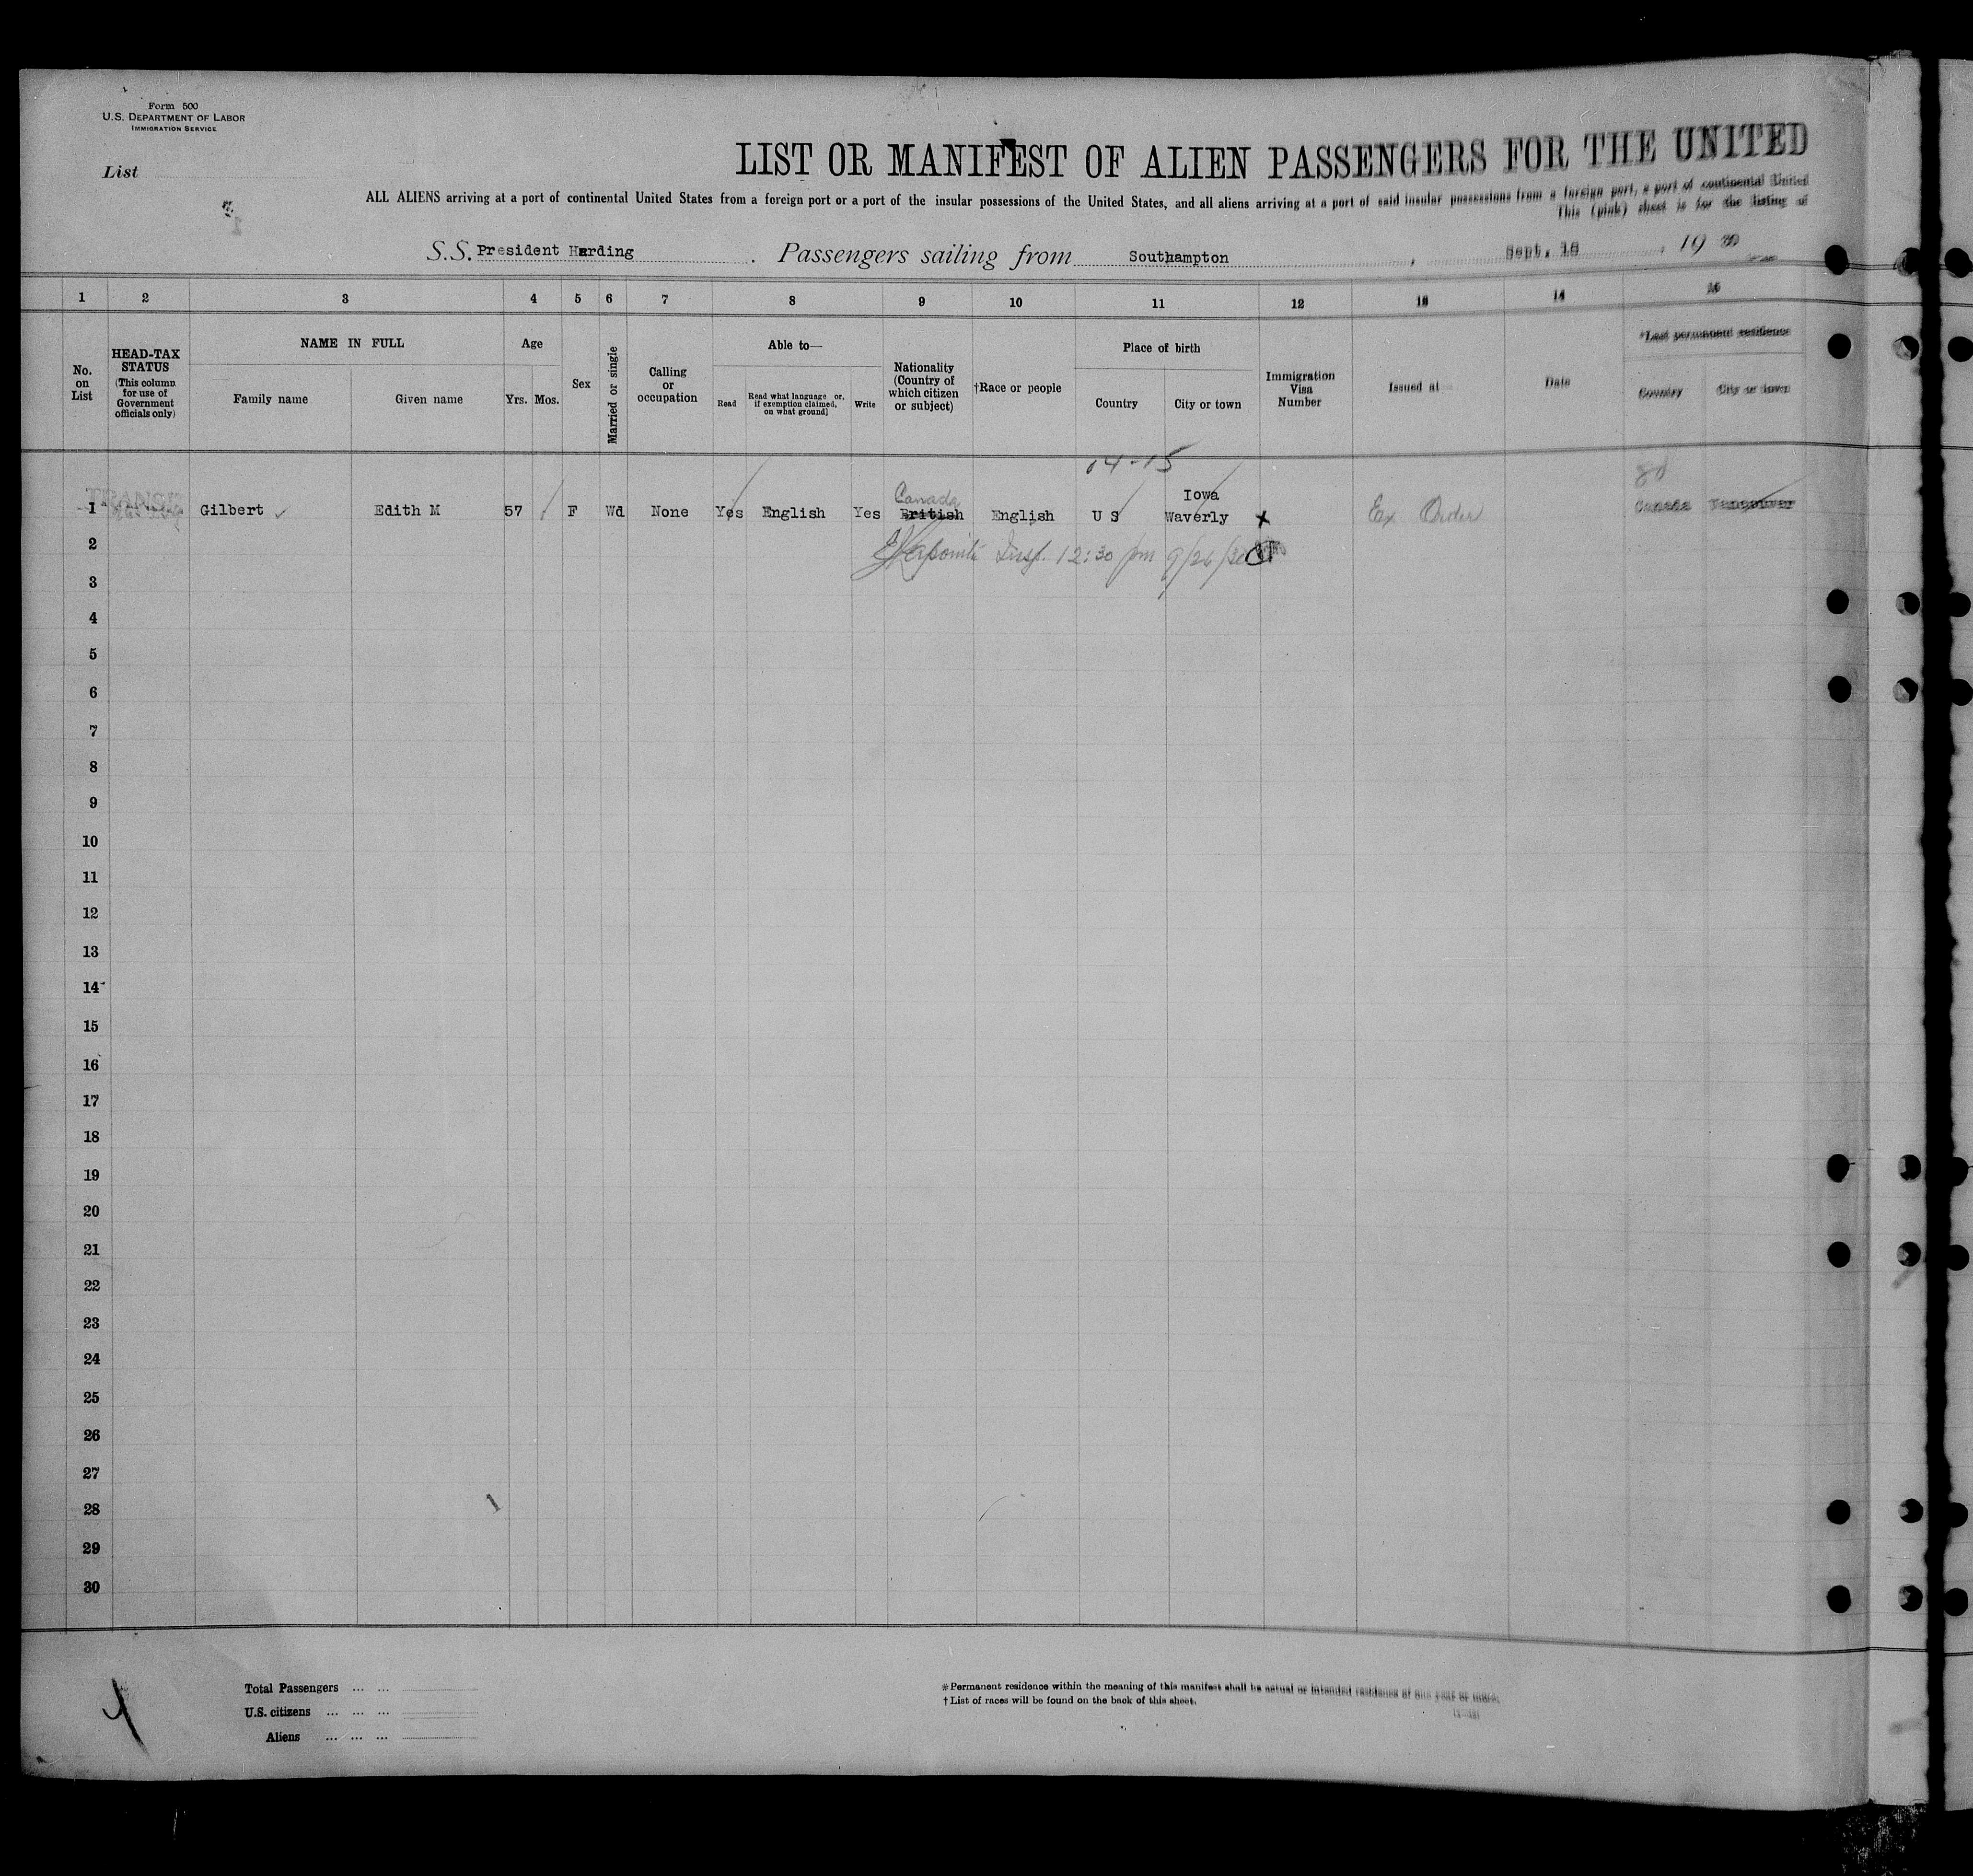 Form 500
U.S. DEPARTMENT OF LABOR
IMMIGRATION SERVICE
List
LIST OR MANIFEST OF ALIEN PASSENGERS FOR THE UNITED
ALL ALIENS arriving at a port of continental United States from a foreign port or a port of the insular possessions of the United States, and all aliens arriving at a port of said insular possessions from a foreign port, a port of continental United
This (pink) sheet is for the listing of
S.S. President Harding . Passengers sailing from Southampton , Sept. 18 , 19 30
1 2 3 4 5 6 7 8 9 10 11 12 13 14 15
No. on List
HEAD-TAX STATUS
(This column for use of Government officials only)
NAME IN FULL
Family name
Given name
Age
Yrs. Mos.
Sex
Married or single
Calling or occupation
Able to—
Read
Read what language or, if exemption claimed, on what ground]
Write
Nationality (Country of which citizen or subject)
†Race or people
Place of birth
Country
City or town
Immigration Visa Number
Issued at
Date
*Last permanent residence
Country
City or town
04-15
Canada
Iowa
TRANSIT
1 Gilbert Edith M 57 F Wd None Yes English Yes British English U S Waverly x Ex Order Canada Vancouver
Insp. 12:30 pm 9/26/30
2
3
4
5
6
7
8
9
10
11
12
13
14
15
16
17
18
19
20
21
22
23
24
25
26
27
28
29
30
Total Passengers ... ...
U.S. citizens ... ... ...
Aliens ... ... ...
*Permanent residence within the meaning of this manifest shall be actual or intended residence of one year or more.
†List of races will be found on the back of this sheet.